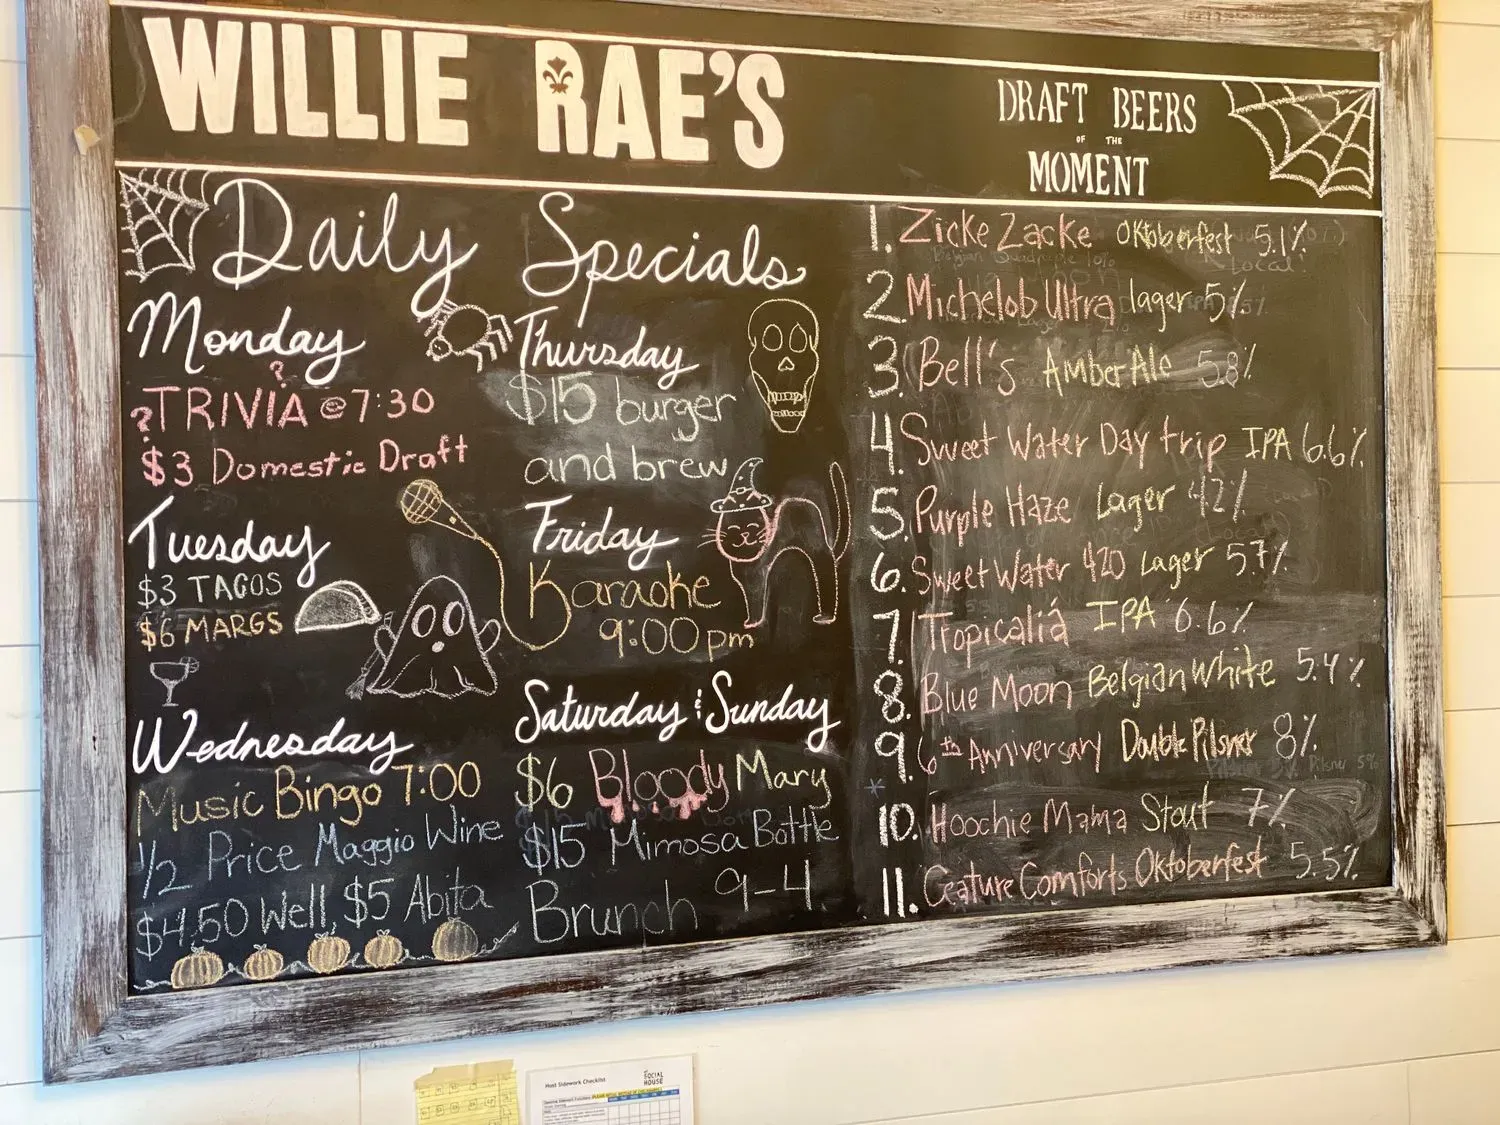 WILLIE RAE'S
DRAFT BEERS
OF THE
MOMENT
Daily Specials
Monday
? TRIVIA @ 7:30 ?
$3 Domestic Draft
Tuesday
$3 TACOS
$6 MARGS
Wednesday
Music Bingo 7:00
1/2 Price Maggio Wine
$4.50 Well, $5 Abita
Thursday
$15 burger
and brew
Friday
Karaoke
9:00pm
Saturday & Sunday
$6 Bloody Mary
$15 Mimosa Bottle
Brunch 9-4
1. Zicke Zacke Oktoberfest 5.1%
2. Michelob Ultra lager 5%
3. Bell's Amber Ale 5.8%
4. Sweet Water Day trip IPA 6.6%
5. Purple Haze Lager 4.2%
6. Sweet Water 420 Lager 5.7%
7. Tropicaliá IPA 6.6%
8. Blue Moon Belgian White 5.4%
9. 6th Anniversary Double Pilsner 8%
*
10. Hoochie Mama Stout 7%
11. Ceature Comforts Oktoberfest 5.5%
Host Sidework Checklist
SOCIAL
HOUSE